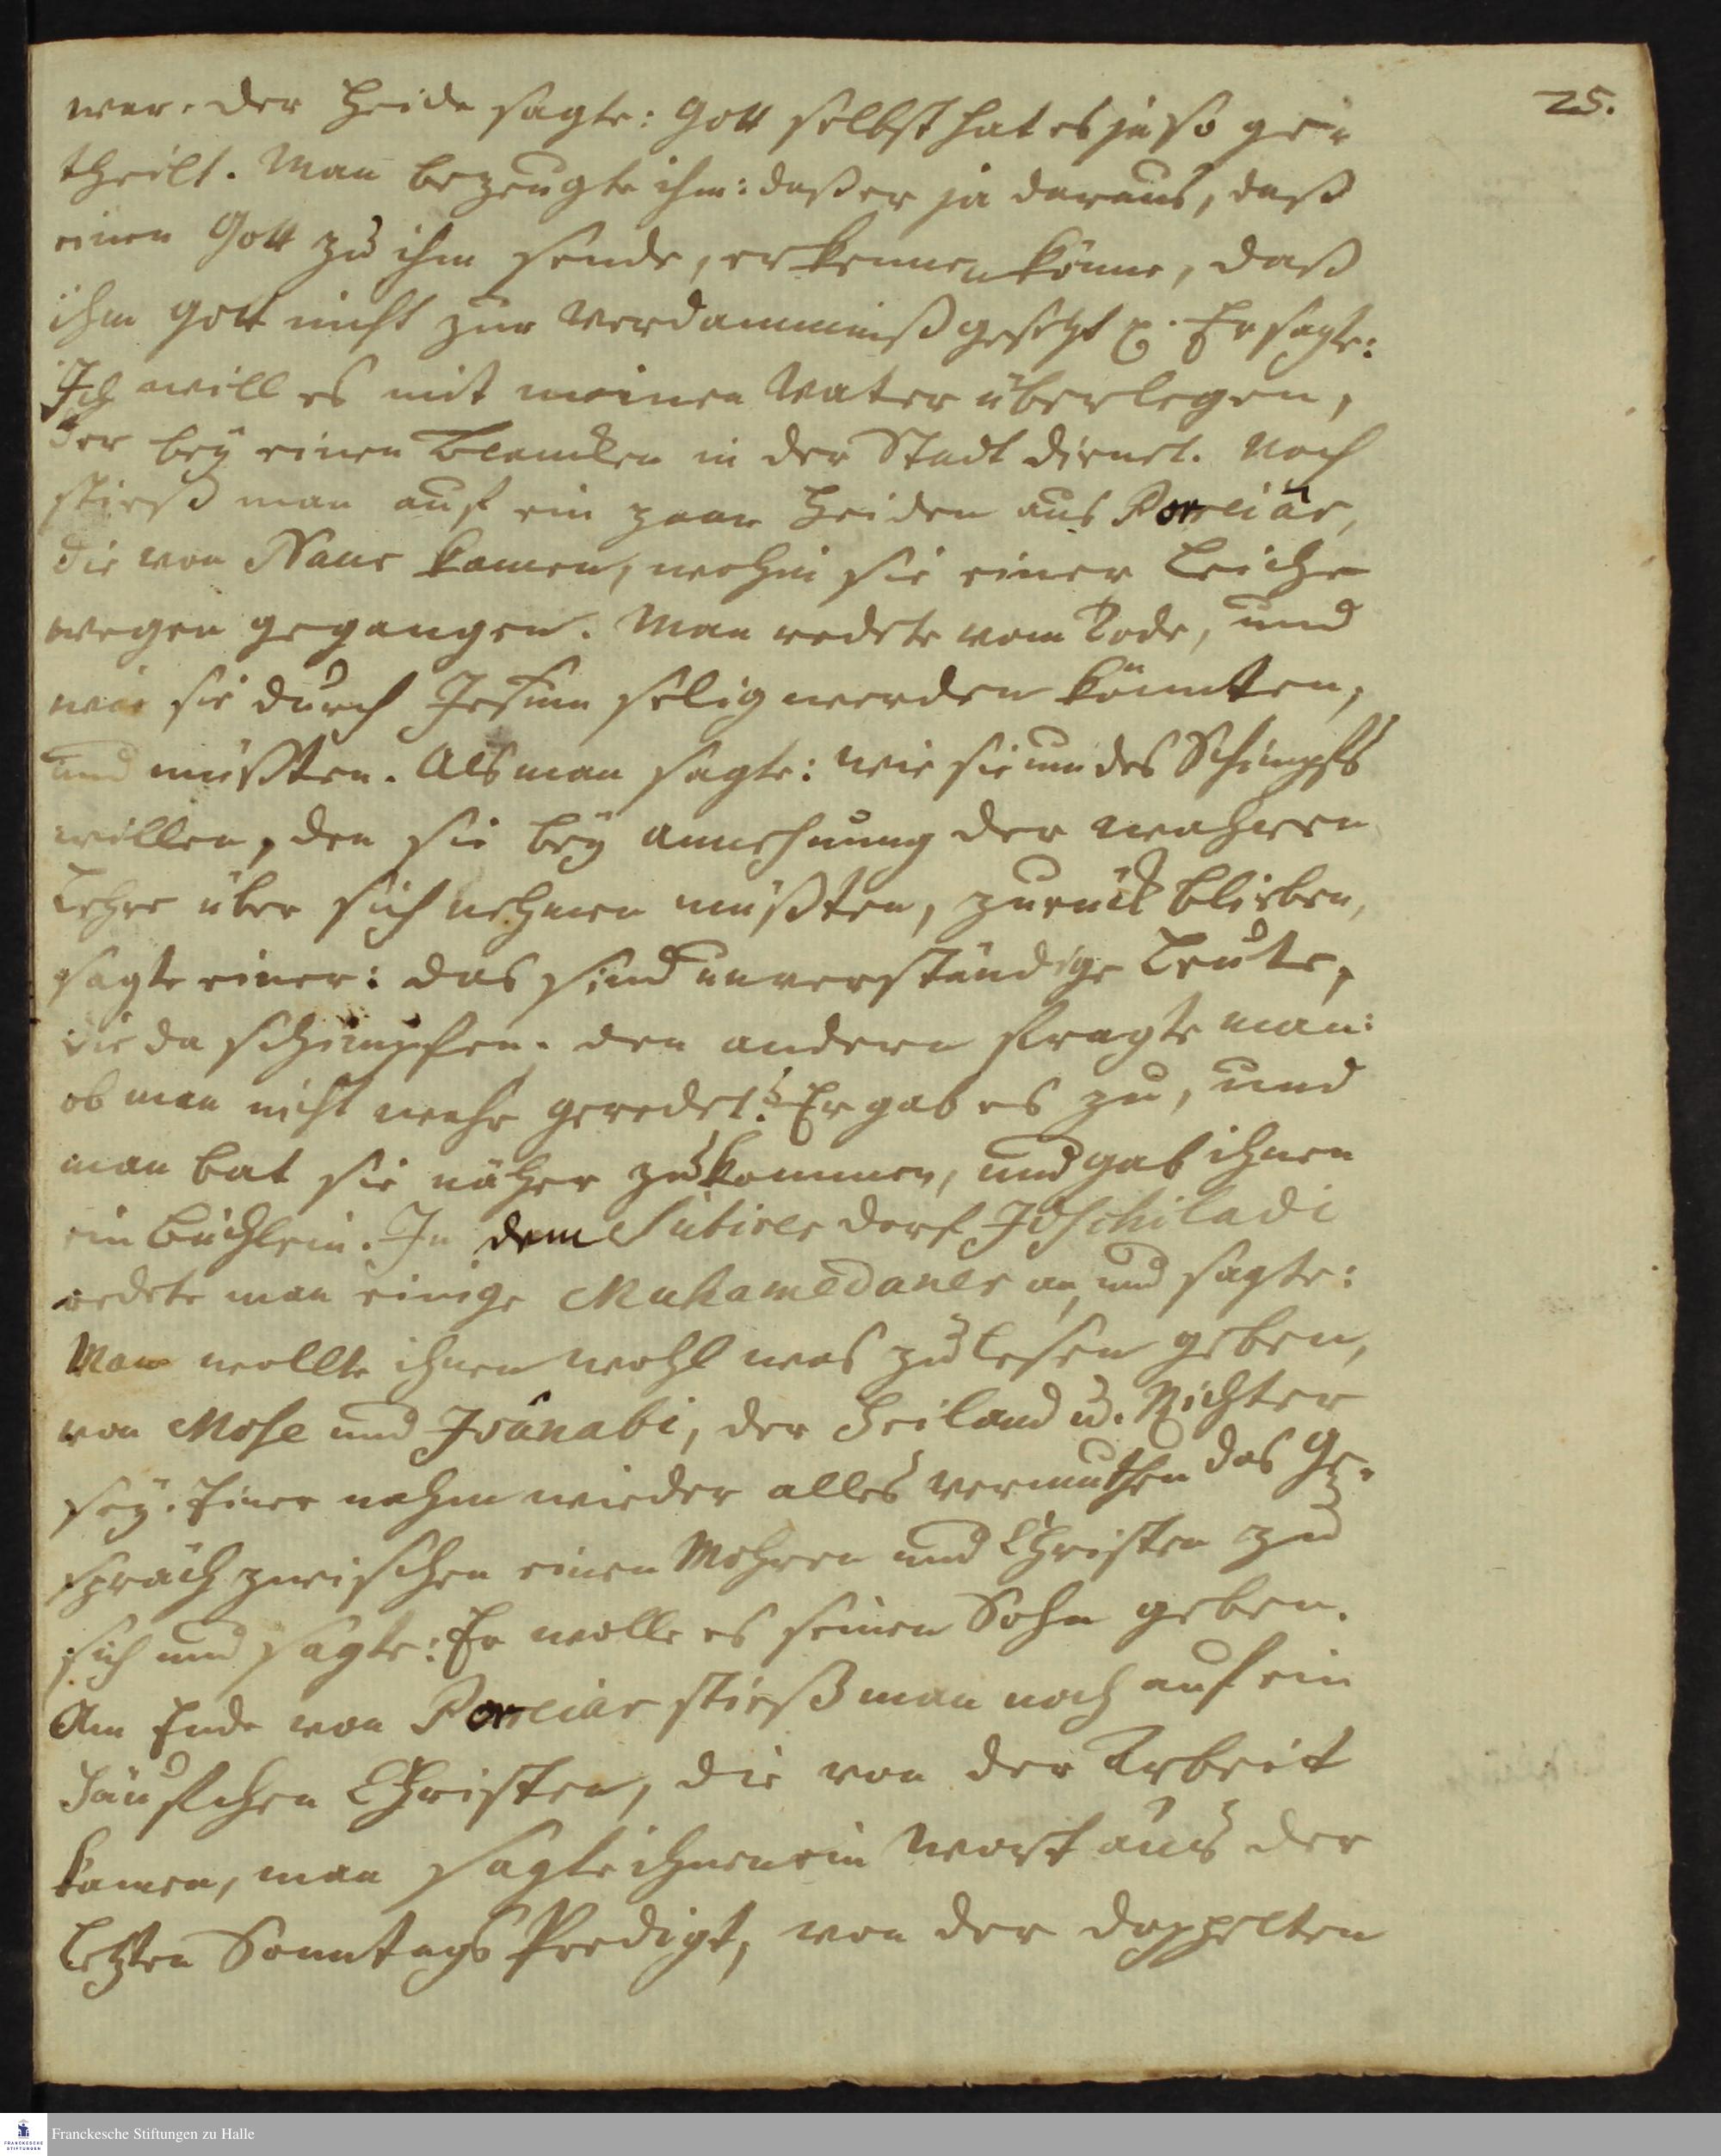 25.
war. Der Heide sagte: Gott selbst hat es ja so ge-
theilt. Man bezeugte ihm: daß er ja daraus, daß
einen Gott zu ihm sende, erkennen könne, daß
ihm Gott nicht zur Verdammniß gesetzt p. Er sagte:
Ich will es mit meinen Vater überlegen,
der bey einen Blancken in der Stadt dienet. Noch
stieß man auf ein paar Heiden aus Poreiar,
die von Naur kamen, wohin sie einer Leiche
wegen gegangen. Man redete vom Tode, und
wie sie durch Jesum selig werden könnten,
und müßten. Als man sagte: wie sie um des Schimpfs
willen, den sie bey Annehmung der wahren
Lehre über sich nehmen müßten, zurück blieben,
sagte einer: das sind unverständige Leute,
die da schimpfen. Den andern fragte man:
ob man nicht wahr geredet? Er gab es zu, und
man bat sie näher zu kommen, und gab ihnen
ein Büchlein. In dem Sutirer dorf Idschiladi
redete man einige Muhamedaner an, und sagte:
Man wollte ihnen wohl was zu lesen geben,
von Mose und Isanabi, der Heiland u. Richter
sey. Einer nahm wieder alles vermuthen das Ge-
spräch zwischen einen Mohren und Christen zu
sich und sagte: Er wolle es seinen Sohn geben.
Am Ende von Poreiar stieß man noch auf ein
Häufchen Christen, die von der Arbeit
kamen, man sagte ihnen ein Wort aus der
letzten Sonntags Predigt, von der doppelten
Franckesche Stiftungen zu Halle